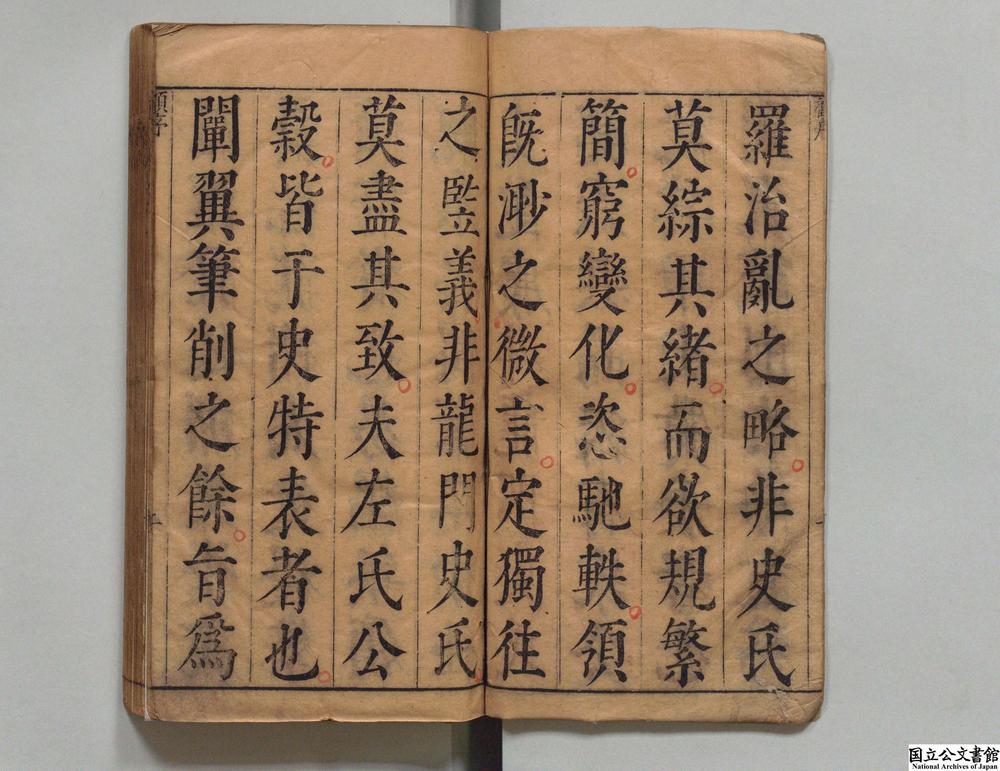 羅治亂之略非史氏
莫綜其緒而欲規繁
簡窮變化恣馳軼領
旣渺之微言定獨往
之監義非龍門史氏
莫盡其致夫左氏公
穀皆于史特表者也
闡翼筆削之餘旨爲
顧序
国立公文書館
National Archives of Japan